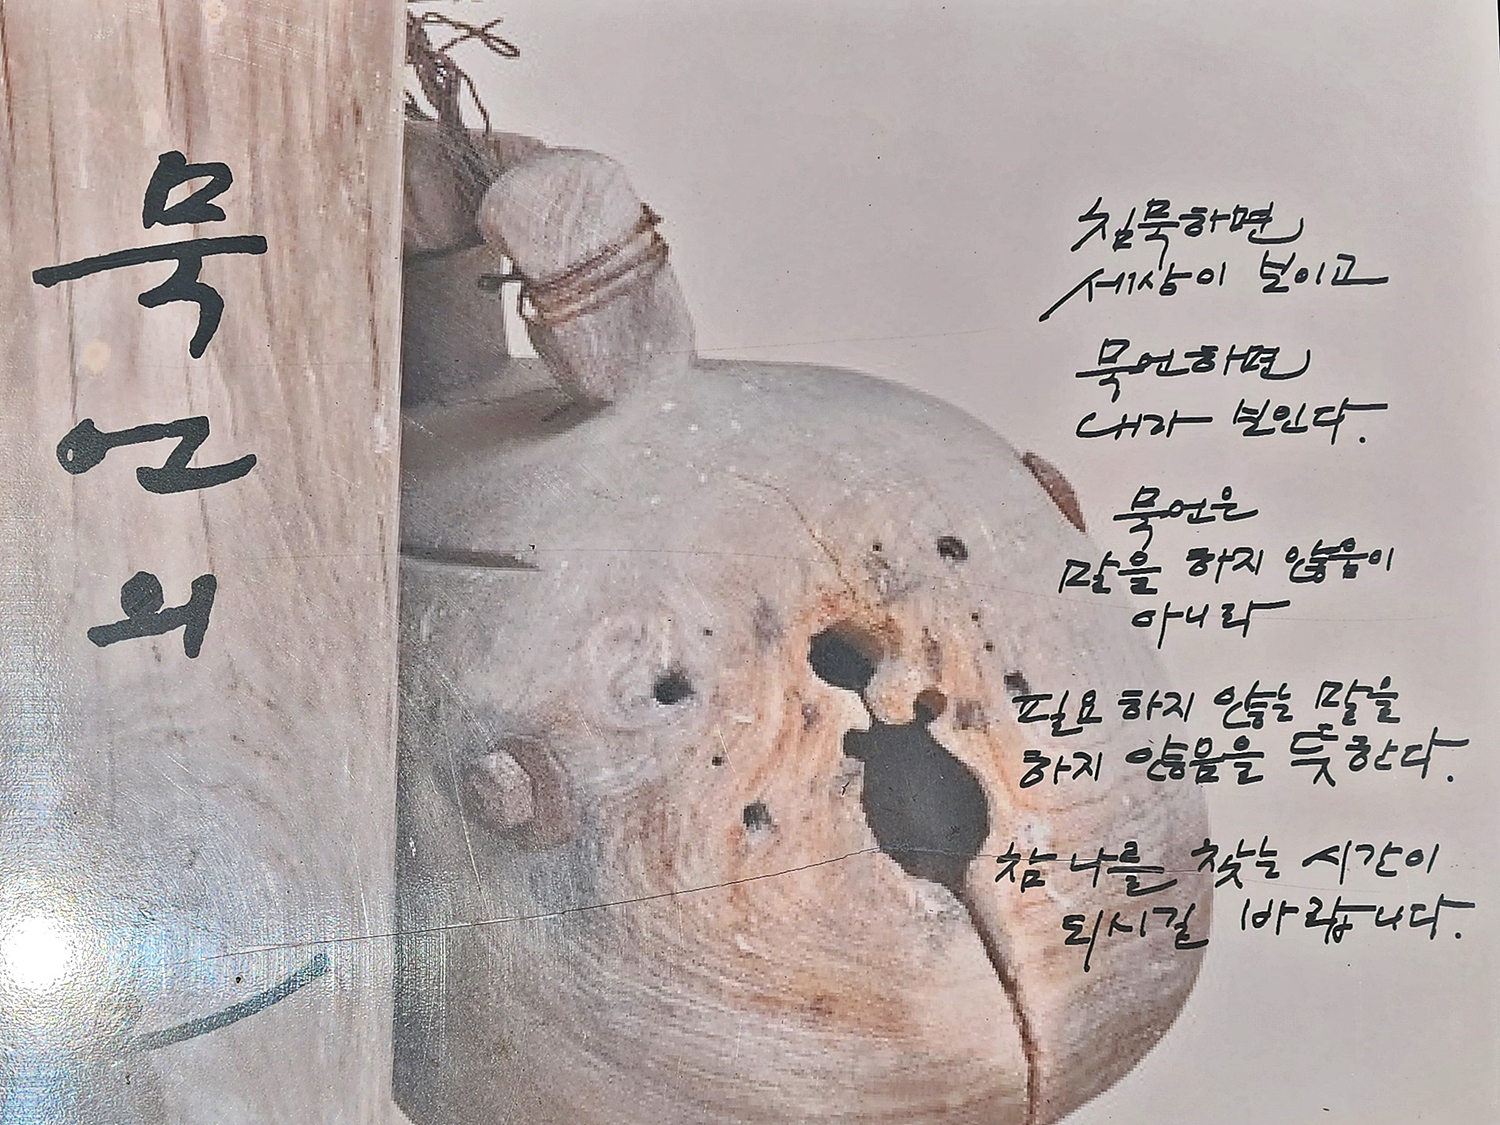 묵언의
침묵하면
세상이 보이고
묵언하면
내가 보인다.
묵언은
말을 하지 않음이
아니라
필요 하지 않는 말을
하지 않음을 뜻한다.
참 나를 찾는 시간이
되시길 바랍니다.